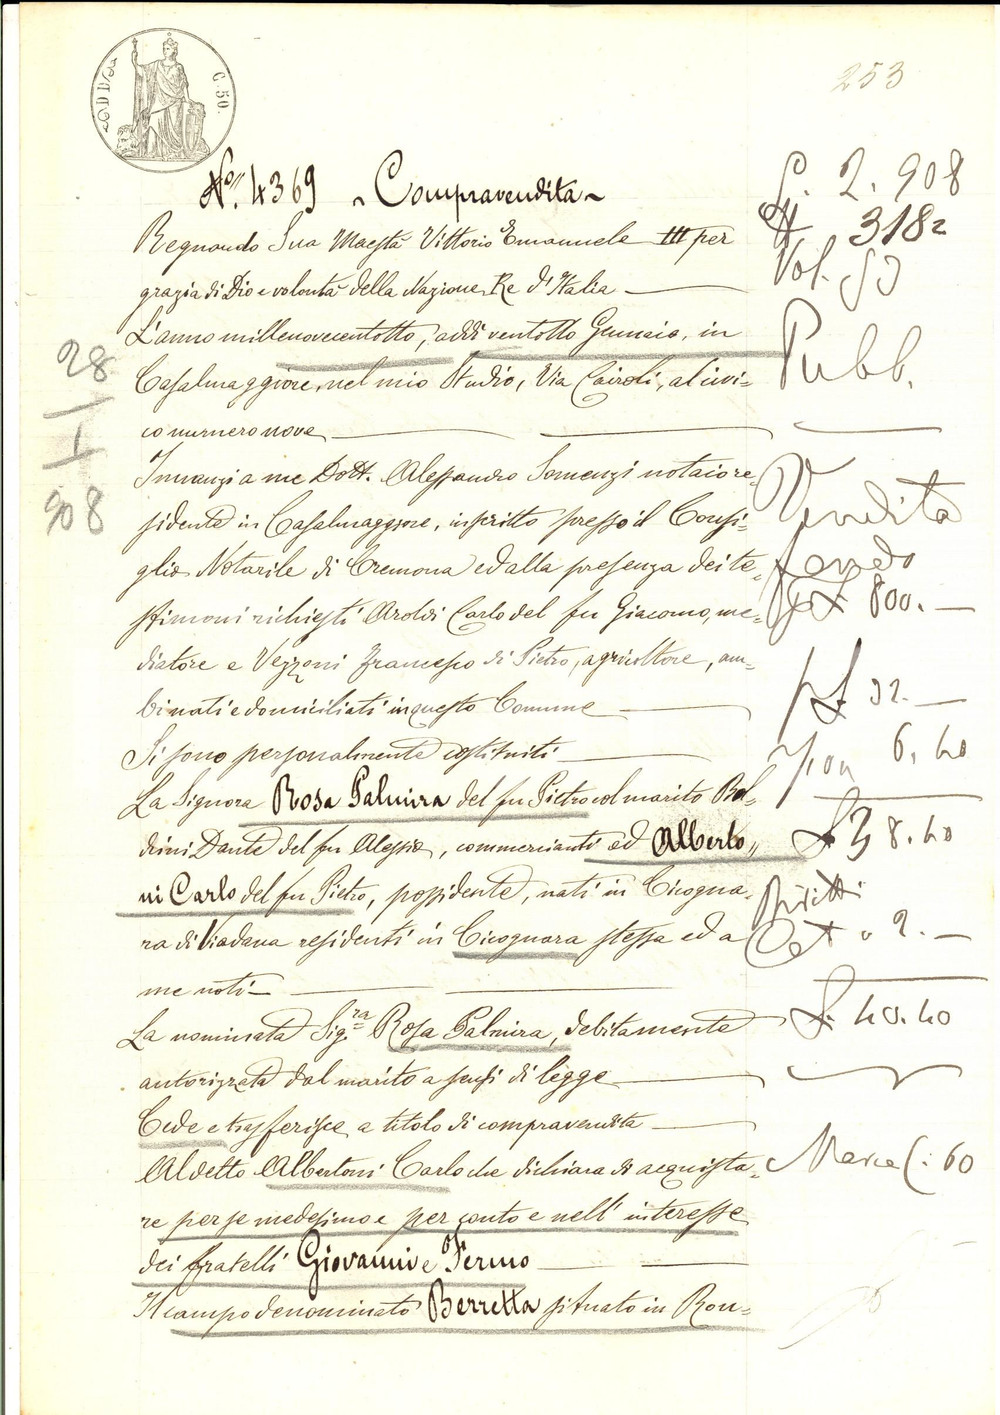 253
C. 50.
No. 4369 ~ Compravendita ~
Regnando Sua Maestà Vittorio Emanuele III per
grazia di Dio e volontà della Nazione Re d'Italia
L'anno millenovecentotto, addì ventotto Gennaio, in
Casalmaggiore, nel mio Studio, Via Cairoli, al civi=
co numero nove
Innanzi a me Dott. Alessandro Somenzi notaio re=
sidente in Casalmaggiore, inscritto presso il Consi=
glio Notarile di Cremona ed alla presenza dei te=
stimoni richiesti Aroldi Carlo del fu Giacomo, me=
diatore e Vezzoni Francesco di Pietro, agricoltore, am=
bi nati e domiciliati in questo Comune
Si sono personalmente costituiti
La Signora Rosa Palmira del fu Pietro col marito Bol=
drini Dante del fu Alessio, commercianti ed Alberto=
ni Carlo del fu Pietro, possidente, nati in Cicogna=
ra di Viadana residenti in Cicognara stessa ed a
me noti
La nominata Sig.ra Rosa Palmira, debitamente
autorizzata dal marito a sensi di legge
Cede e trasferisce a titolo di compravendita
Al detto Albertoni Carlo che dichiara di acquista=
re per se medesimo e per conto e nell'interesse
dei fratelli Giovanni e Fermo
Il campo denominato Berretta situato in Ron=
28
I
908
L. 2.908
318=
Vol. 59
Pubb.
Vendita
fondo
800.—
32.—
6.40
38.40
Diritti
2.—
L. 40.40
Marca C. 60